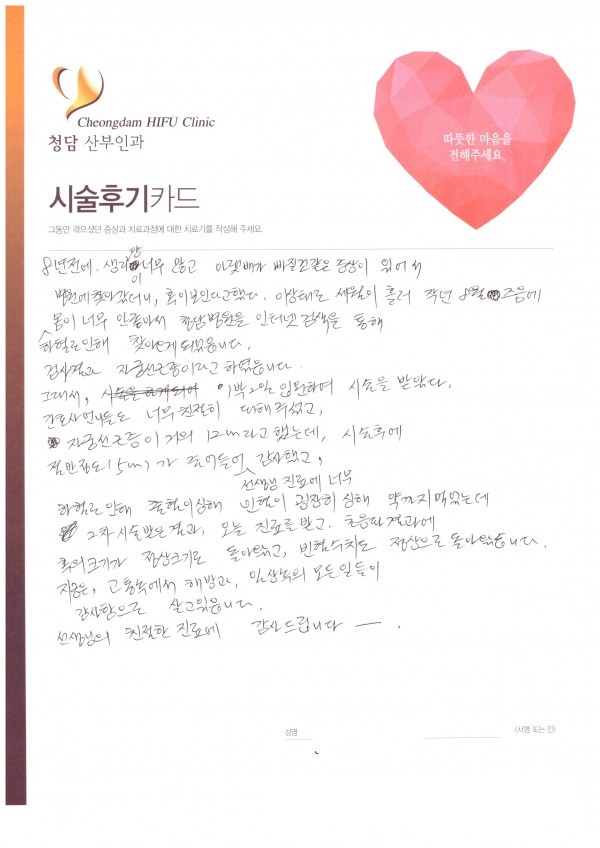 Cheongdam HIFU Clinic
청담 산부인과
따뜻한 마음을
전해주세요.
시술후기카드
그동안 겪으셨던 증상과 치료과정에 대한 치료기를 작성해 주세요.
8년전에. 생리양이 너무 많고 아랫배가 빠질것같은 증상이 있어서
병원에 찾아갔더니, 혹이 보인다고했다. 이상태로 세월이 흘러 작년 8월 즈음에
몸이 너무 안좋아서 청담병원을 인터넷 검색을 통해
하혈로 인해 찾아오게 되었읍니다.
검사결과 자궁선근증이라고 하였읍니다.
그래서, 1박2일 입원하며 시술을 받았다.
간호사 언니들도 너무 친절히 대해주셨고,
자궁선근증이 거의 12cm라고 했는데, 시술후에
절반정도(5cm)가 줄어들어 선생님 진료에 너무 감사했고,
하혈로 인해 빈혈이 굉장히 심해 약까지 먹었는데
2차 시술받은결과, 오늘 진료를 받고. 초음파 결과에
혹의크기가 정상크기로 돌아왔고, 빈혈수치도 정상으로 돌아왔읍니다.
지금은, 고통속에서 해방과, 일상속의 모든일들이
감사함으로 살고있읍니다.
선생님의 친절한 진료에 감사드립니다 ㅡ.
성명
(서명 또는 인)